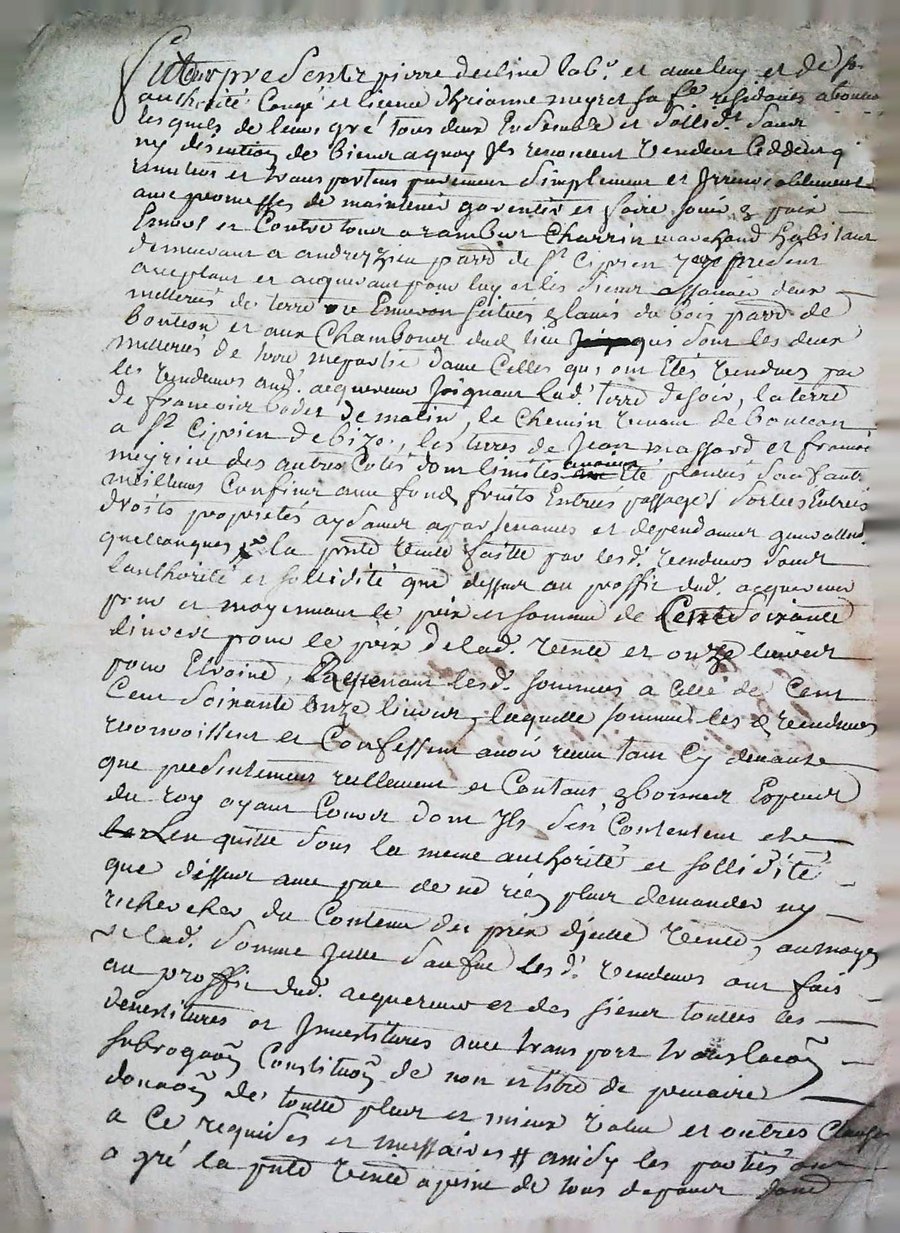 presents pierre decline lab.r et avec luy et de sa
authorité Congé et licence meyret sa fe residants a bouteon
lesquels de leurs gré tous deux Ensemble et sollid.t sans
ny discution de biens a quoy Ils renoncent Vendent Ceddent q
remettent et transportent purement simplement et Irrevocablement
avec promesses de maintenir garentir et faire jouir & paix
Envers et Contre tous a rambert Charrin marchand habitant
demeurant a andrezieu parr.d de s.t Ciprien present
acceptant et acquerant pour luy et les siens assavoir deux
metterés de terre ou Environ scituées du bois parr.d de
bouteon et aux Chambones dud. lieu sont les deux
metterés de terre de Celles qui ont Etés Vendues par
les Vendeurs aud. acquereur Joignant lad. terre de soir, la terre
de francois de matin, le Chemin tenant de bouteon
a s.t Ciprien de bize, les terres de Jean massard et francois
meyrine des autres Cotés dont limites Eté plantés sauf autres
meilleurs Confins avec fond fruits Entrées passages sorties Entrées
droits proprietés aysances apartenances et dependances
quelconques la pnte Vente faitte par lesd. Vendeurs sous
l'authorité et sollidité que dessus au proffit dud. acquereur
pour et moyennant le prix et somme de Cent Soixante
livres pour le prix de lad. Vente et onze livres
pour Etroine, Revenant lesd. sommes a Celle de Cent
Cent soixante Onze livres, laquelle somme les d. Vendeurs
reconnoissent et Confessent avoir receu tant Cy devant
que presentement reellement et Contant & bonnes Especes
du roy ayant Cours dont Ils s'en Contentent et
l'en quitte sous la meme authorité et sollidité
que dessus avec pac de ne rien plus demander ny
rechercher du Contenu du prix d'jcelle Vente, au moyen
de lad. somme Jcelle sauf les d. Vendeurs ont fais
au proffit dud. acquereur et des siens touttes les
devestitures et Jnvestitures avec transport translaôn
subrogaôn Constituôn de nom et titre de precaire
donnaôn de toutte plus et mieux Value et autres Clauses
a Ce requises et necessaires # ainsy les parties ont
a gré la pnte Vente a peine de tous depans dont